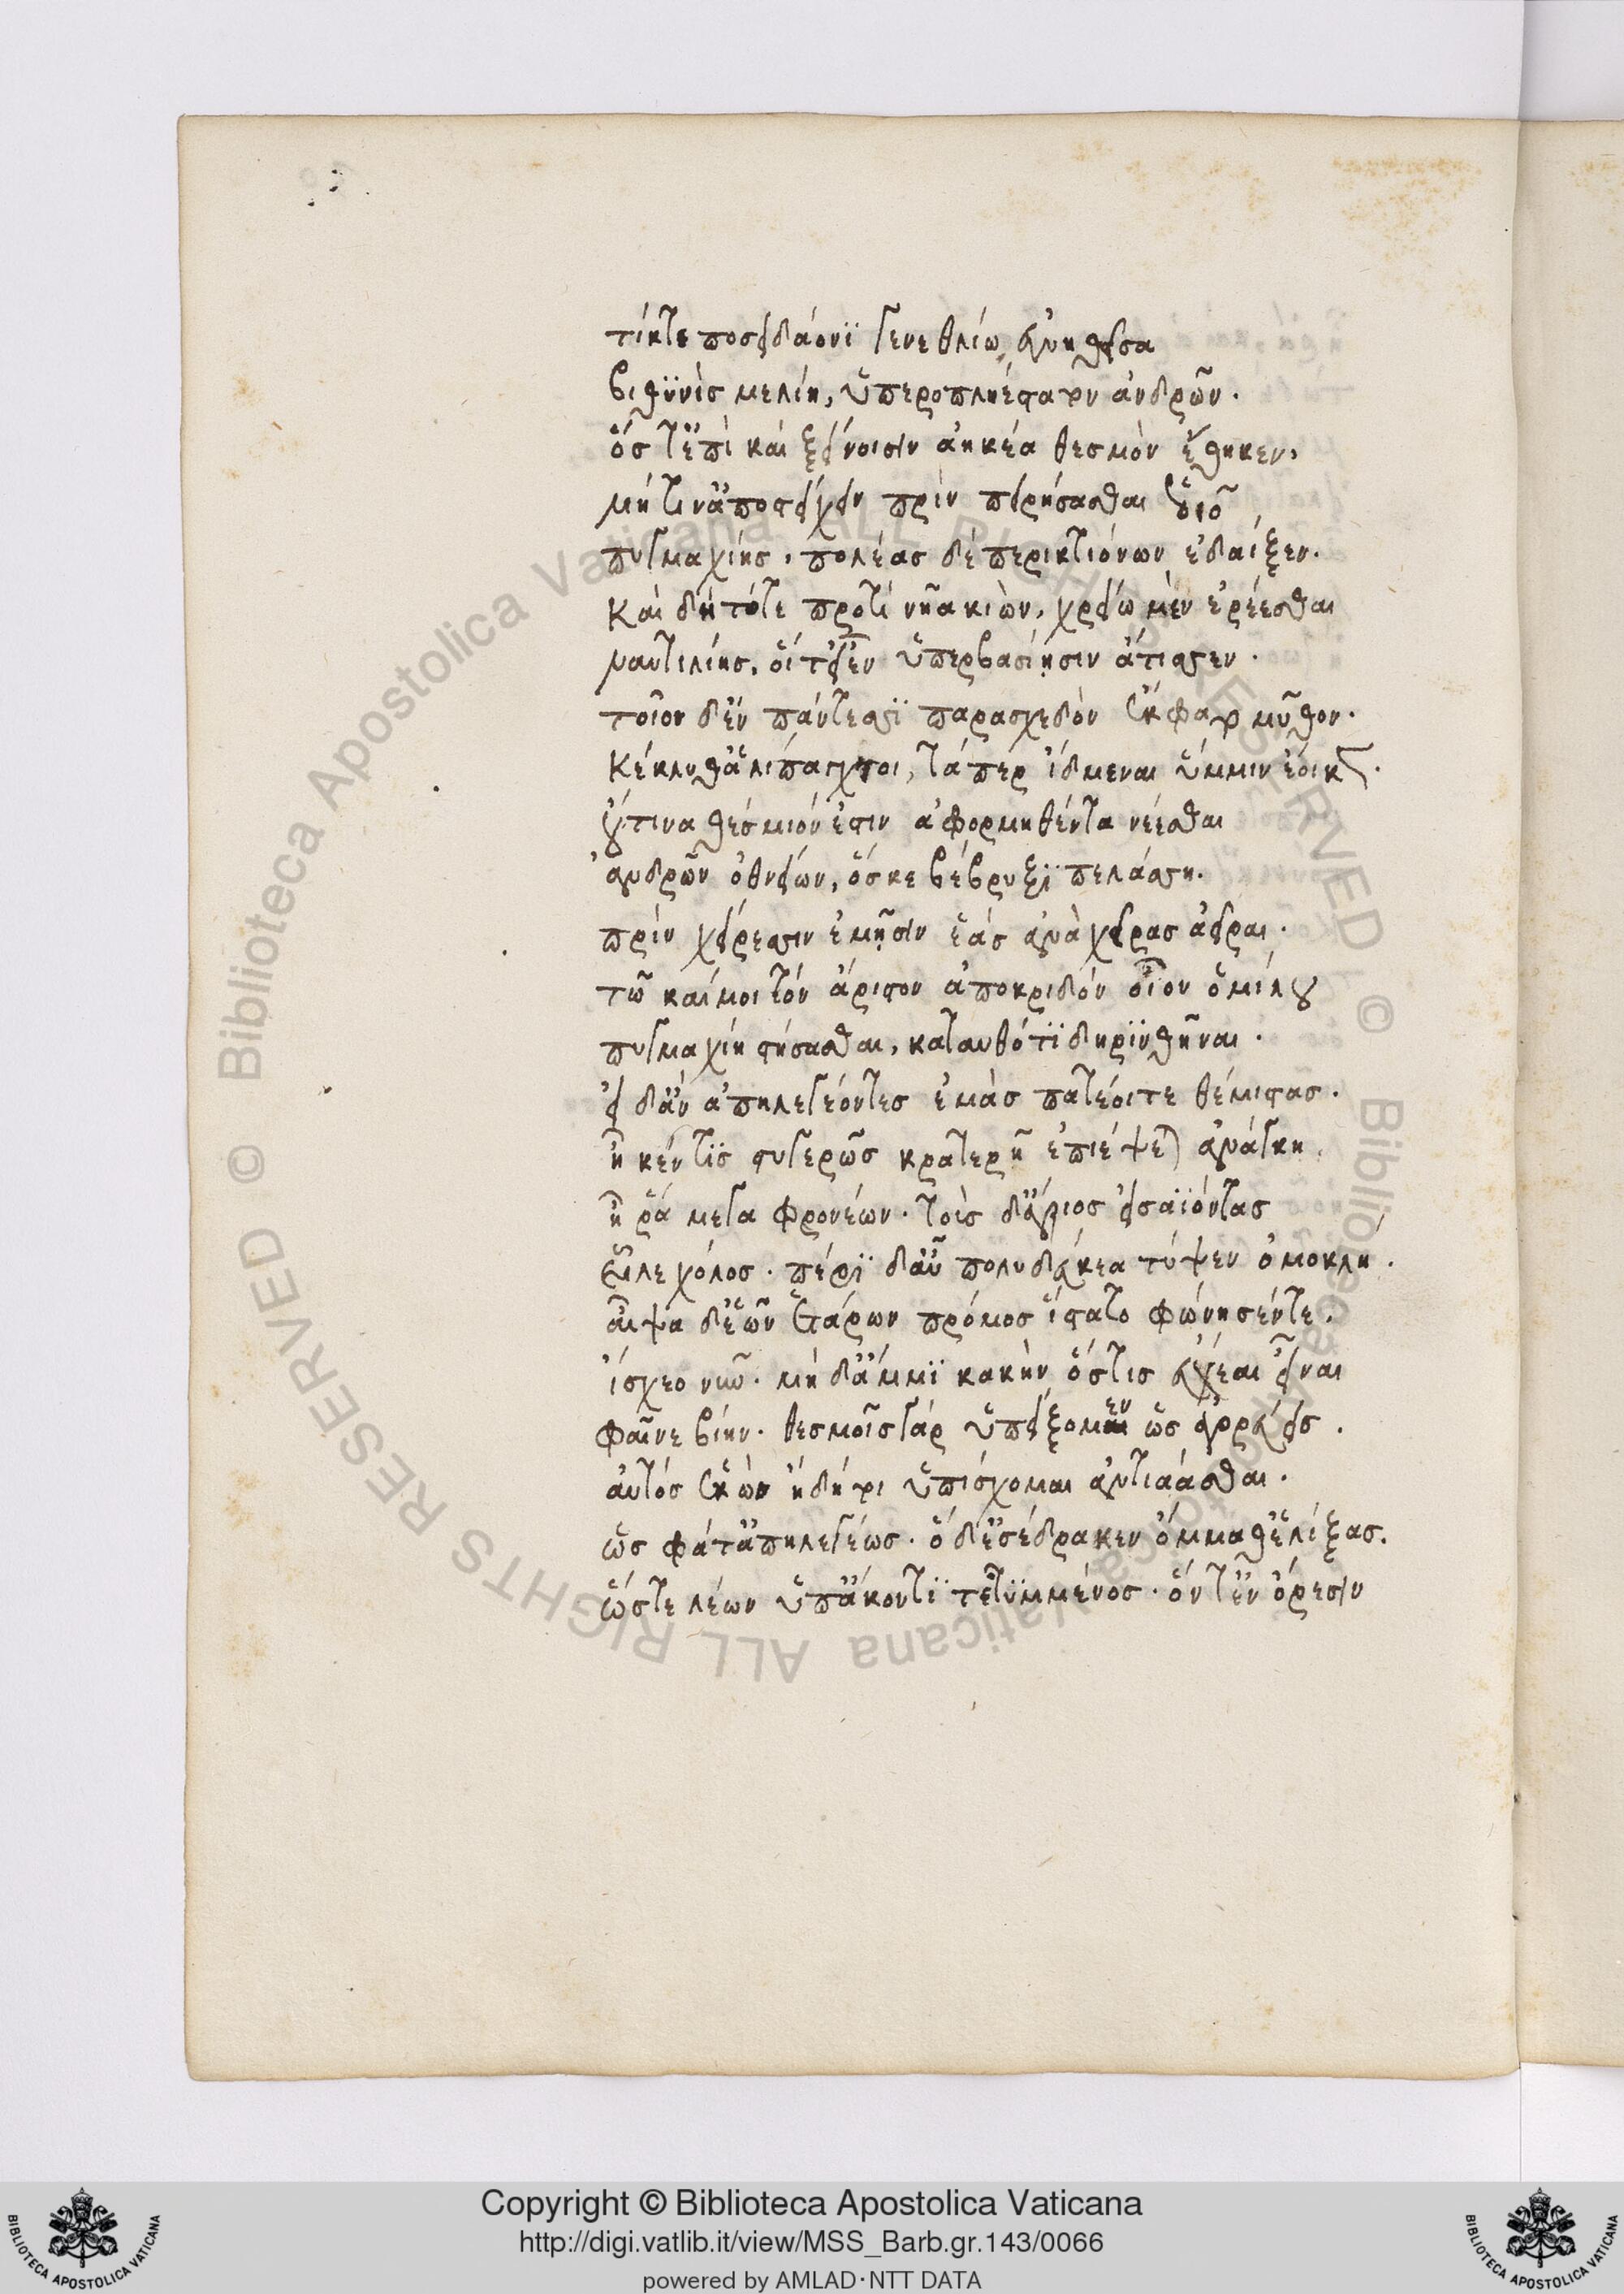 τίκτε ποσειδάονι γενεθλίω εὐνηθεῖσα
βιθυνὶς μελίη, ὑπεροπληέστατον ἀνδρῶν.
ὅς τ' ἐπὶ καὶ ξείνοισιν ἀηκέα θεσμὸν ἔθηκεν,
μή τιν' ἀποστείχειν πρὶν πειρήσασθαι ἑοῖο
πυγμαχίης. πολέας δὲ περικτιόνων ἐδάϊξεν.
καὶ δὴ τότε προτὶ νῆα κιὼν, χρειὼ μὲν ἐρέεσθαι
ναυτιλίης, οἵ τ' εἶεν ὑπερβασίησιν ἄτισσεν.
τοῖον δ' ἐν πάντεσσι παρασχεδὸν ἔκφατο μῦθον.
κέκλυθ' ἁλίπλαγκτοι, τά περ ἴδμεναι ὔμμιν ἔοικεν.
οὔτινα θέσμιόν ἐστιν ἀφορμηθέντα νέεσθαι
ἀνδρῶν ὀθνείων, ὅς κε βέβρυξι πελάσση.
πρὶν χείρεσσιν ἐμῇσιν ἑὰς ἀνὰ χεῖρας ἀεῖραι.
τῶ καί μοι τὸν ἄριστον ἀποκριδὸν οἶον ὁμίλου
πυγμαχίη στήσασθαι, καταυθότι δηρινθῆναι.
εἰ δ' ἂν ἀπηλεγέοντες ἐμὰς πατέοιτε θέμιστας.
ἦ κέν τις στυγερῶς κρατερὴ ἐπιέψεται ἀνάγκη.
ἦ ῥα μέγα φρονέων. τοὺς δ' ἄγριος εἰσαΐοντας
εἷλε χόλος. πέρι δ' αὖ πολυδεύκεα τύψεν ὁμοκλή.
αἶψα δ' ἑῶν ἑτάρων πρόμος ἵστατο φώνησέν τε.
ἴσχεο νῦν. μὴ δ' ἄμμι κακὴν ὅστις εὔχεαι εἶναι
φαῖνε βίην. θεσμοῖς γὰρ ὑπείξομεν ὡς ἀγορεύεις.
αὐτὸς ἑκὼν ἤδη τοι ὑπίσχομαι ἀντιάασθαι.
ὣς φάτ' ἀπηλεγέως. ὁ δ' ἐσέδρακεν ὄμμαθ' ἑλίξας.
ὥστε λέων ὑπ' ἄκοντι τετυμμένος. ὅν τ' ἐν ὄρεσιν
Copyright © Biblioteca Apostolica Vaticana
http://digi.vatlib.it/view/MSS_Barb.gr.143/0066
powered by AMLAD·NTT DATA
BIBLIOTECA APOSTOLICA VATICANA
BIBLIOTECA APOSTOLICA VATICANA
© Biblioteca Apostolica Vaticana ALL RIGHTS RESERVED
© Biblioteca Apostolica Vaticana ALL RIGHTS RESERVED